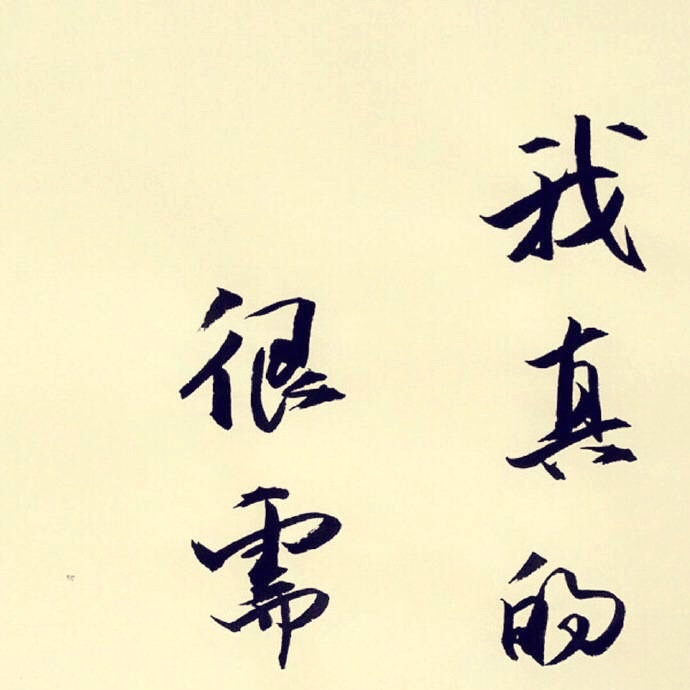 我真的
很需